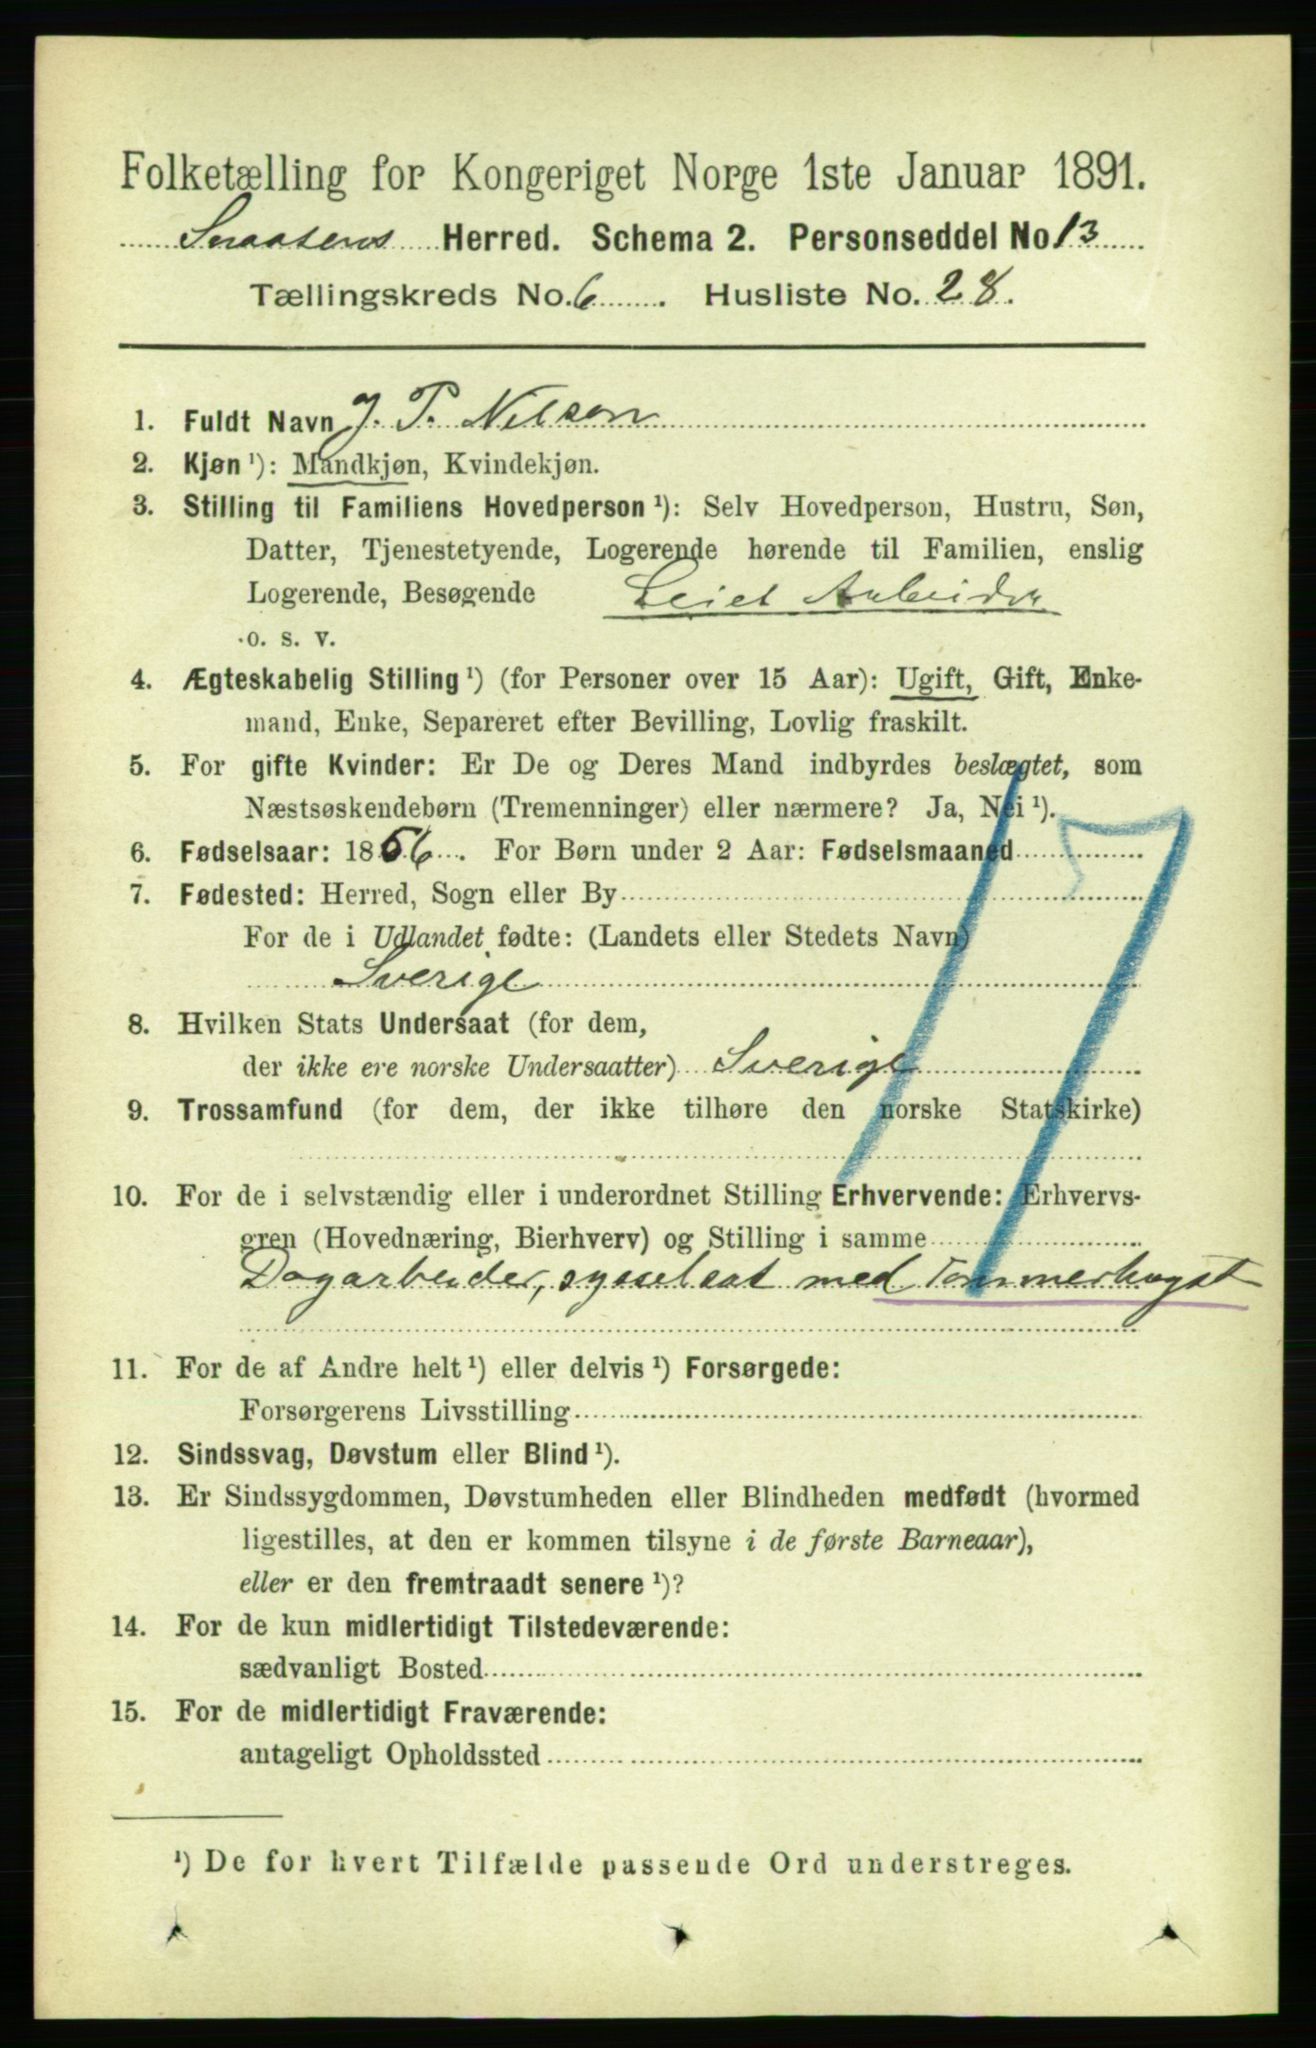 Folketælling for Kongeriget Norge 1ste Januar 1891.
Snaasens Herred. Schema 2. Personseddel No 13
Tællingskreds No. 6. Husliste No. 28.
1. Fuldt Navn J. P. Nilson
2. Kjøn ¹): Mandkjøn, Kvindekjøn.
3. Stilling til Familiens Hovedperson ¹): Selv Hovedperson, Hustru, Søn,
Datter, Tjenestetyende, Logerende hørende til Familien, enslig
Logerende, Besøgende Leiet Arbeider
o. s. v.
4. Ægteskabelig Stilling ¹) (for Personer over 15 Aar): Ugift, Gift, Enke-
mand, Enke, Separeret efter Bevilling, Lovlig fraskilt.
5. For gifte Kvinder: Er De og Deres Mand indbyrdes beslægtet, som
Næstsøskendebørn (Tremenninger) eller nærmere? Ja, Nei ¹).
6. Fødselsaar: 1866. For Børn under 2 Aar: Fødselsmaaned
7. Fødested: Herred, Sogn eller By
For de i Udlandet fødte: (Landets eller Stedets Navn)
Sverige
8. Hvilken Stats Undersaat (for dem,
der ikke ere norske Undersaatter) Sverige
9. Trossamfund (for dem, der ikke tilhøre den norske Statskirke)
10. For de i selvstændig eller i underordnet Stilling Erhvervende: Erhvervs-
gren (Hovednæring, Bierhverv) og Stilling i samme
Dagarbeider, sysselsat med Tømmerhugst
11. For de af Andre helt ¹) eller delvis ¹) Forsørgede:
Forsørgerens Livsstilling
12. Sindssvag, Døvstum eller Blind ¹).
13. Er Sindssygdommen, Døvstumheden eller Blindheden medfødt (hvormed
ligestilles, at den er kommen tilsyne i de første Barneaar),
eller er den fremtraadt senere ¹)?
14. For de kun midlertidigt Tilstedeværende:
sædvanligt Bosted
15. For de midlertidigt Fraværende:
antageligt Opholdssted
¹) De for hvert Tilfælde passende Ord understreges.